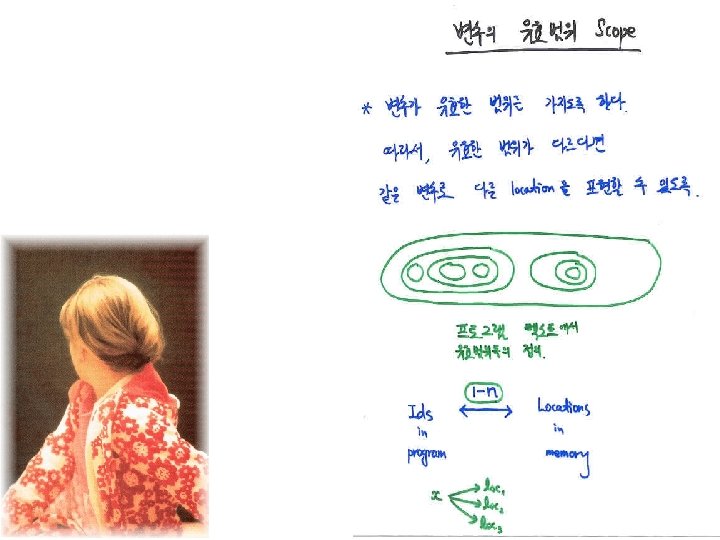 변수의 유효범위 Scope
* 변수가 유효한 범위를 가지도록 한다.
따라서, 유효한 범위가 다르다면
같은 변수로 다른 location을 표현할 수 있도록.
프로그램 텍스트에서
유효범위들의 정의.
1-n
Ids Locations
in in
program memory
x loc1
loc2
loc3